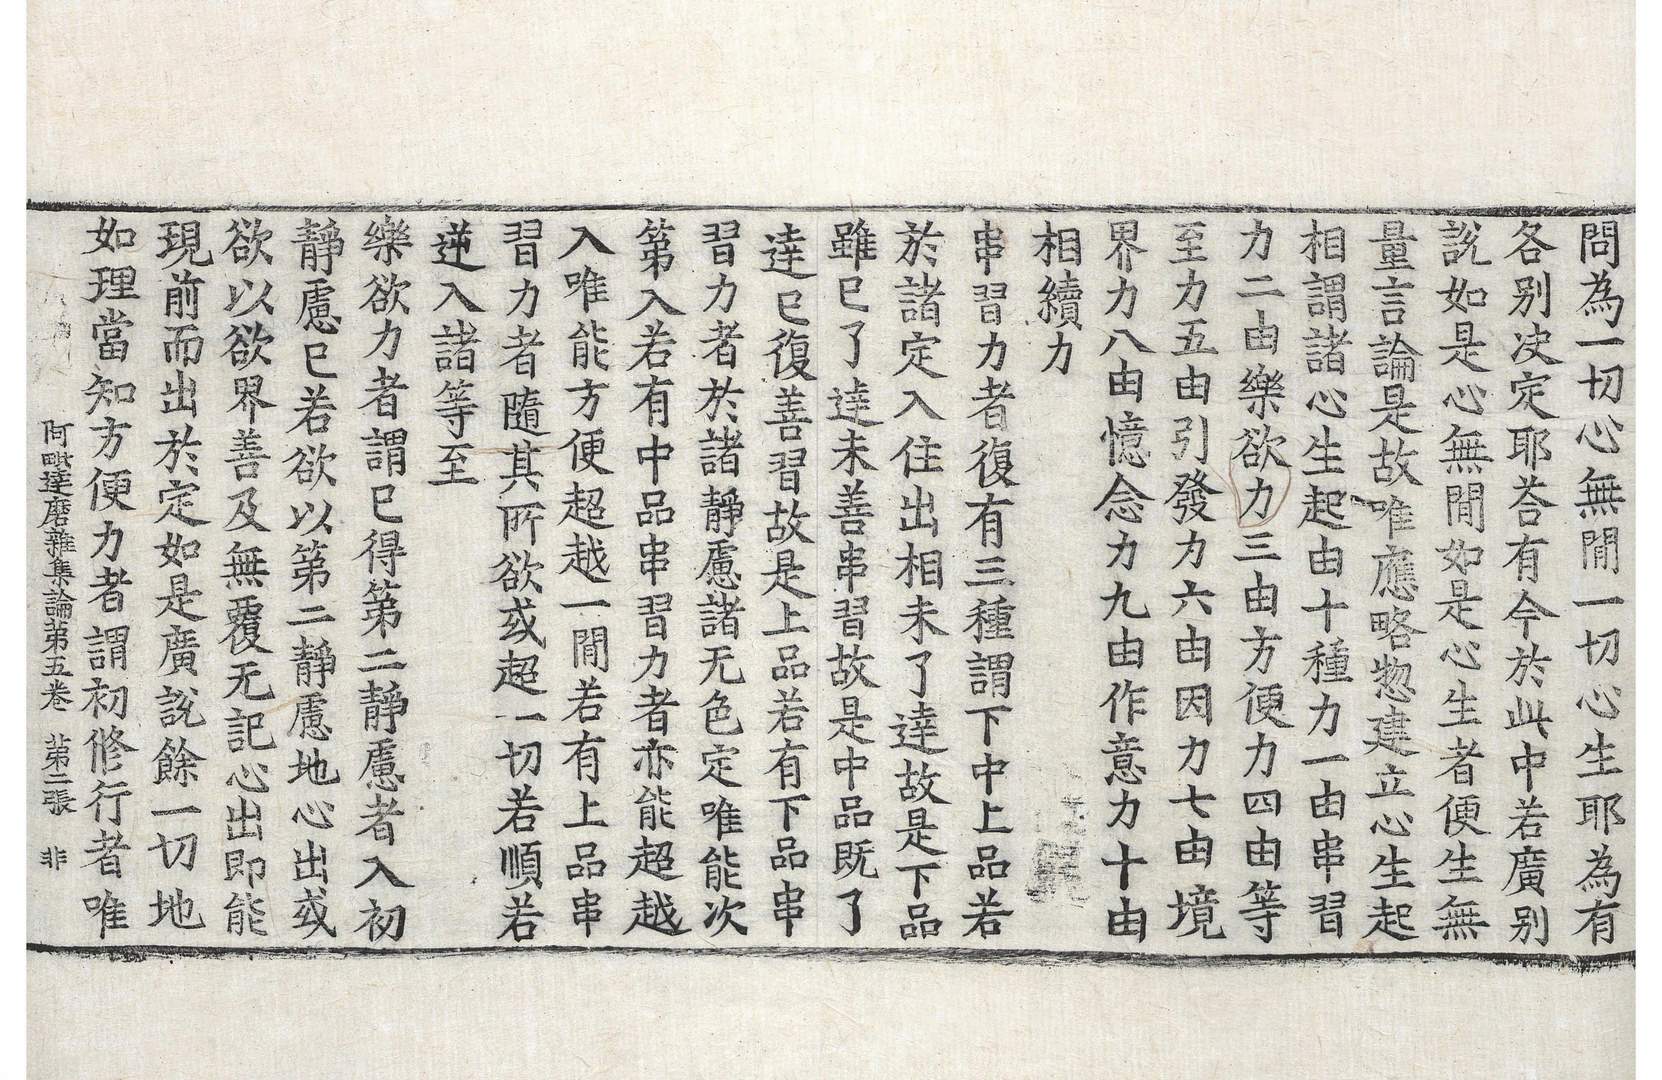 問為一切心無間一切心生耶為有
各别决定耶荅有今於此中若廣别
說如是心無間如是心生者便生無
量言論是故唯應略惣建立心生起
相謂諸心生起由十種力一由串習
力二由樂欲力三由方便力四由等
至力五由引發力六由因力七由境
界力八由憶念力九由作意力十由
相續力
串習力者復有三種謂下中上品若
於諸定入住出相未了達故是下品
雖已了達未善串習故是中品既了
達已復善習故是上品若有下品串
習力者於諸靜慮諸无色定唯能次
第入若有中品串習力者亦能超越
入唯能方便超越一間若有上品串
習力者隨其所欲或超一切若順若
逆入諸等至
樂欲力者謂已得第二靜慮者入初
靜慮已若欲以第二靜慮地心出或
欲以欲界善及無覆无記心出即能
現前而出於定如是廣說餘一切地
如理當知方便力者謂初修行者唯
阿毗達磨雜集論第五卷 第二張 非